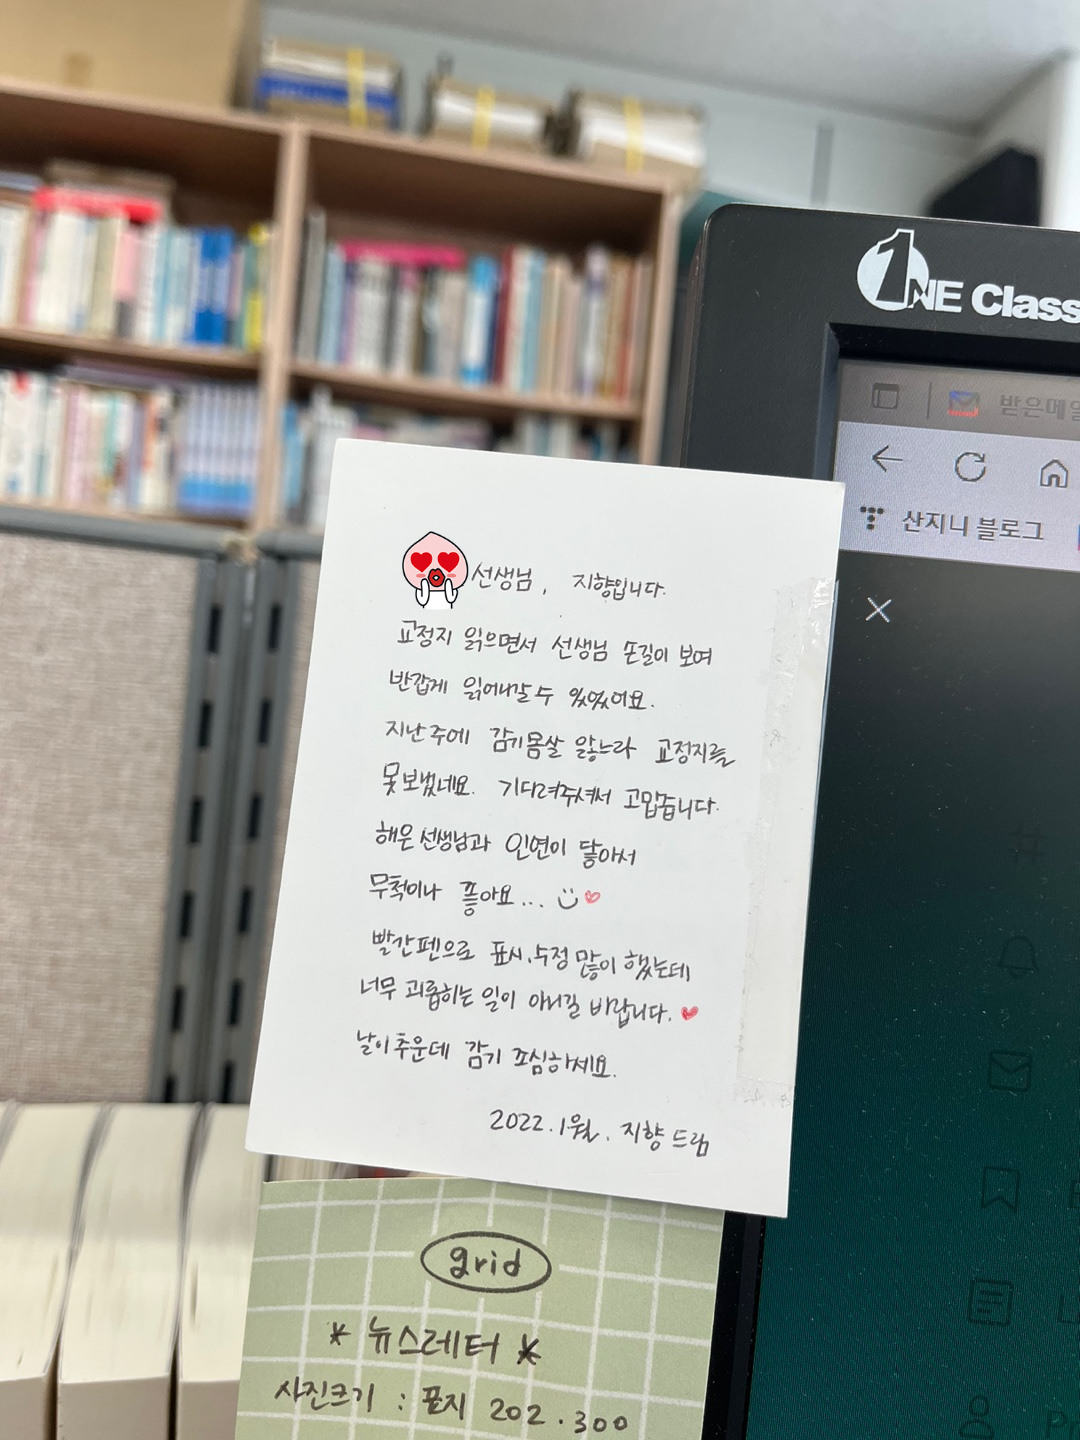 1NE Class
받은메일
산지니 블로그
선생님, 지향입니다.
교정지 읽으면서 선생님 손길이 보여
반갑게 읽어나갈 수 있었어요.
지난 주에 감기몸살 앓느라 교정지를
못 보냈네요. 기다려주셔서 고맙습니다.
해은 선생님과 인연이 닿아서
무척이나 좋아요...
빨간펜으로 표시, 수정 많이 했는데
너무 괴롭히는 일이 아니길 바랍니다.
날이 추운데 감기 조심하세요.
2022. 1월. 지향 드림
grid
* 뉴스레터 *
사진크기 : 표지 202.300